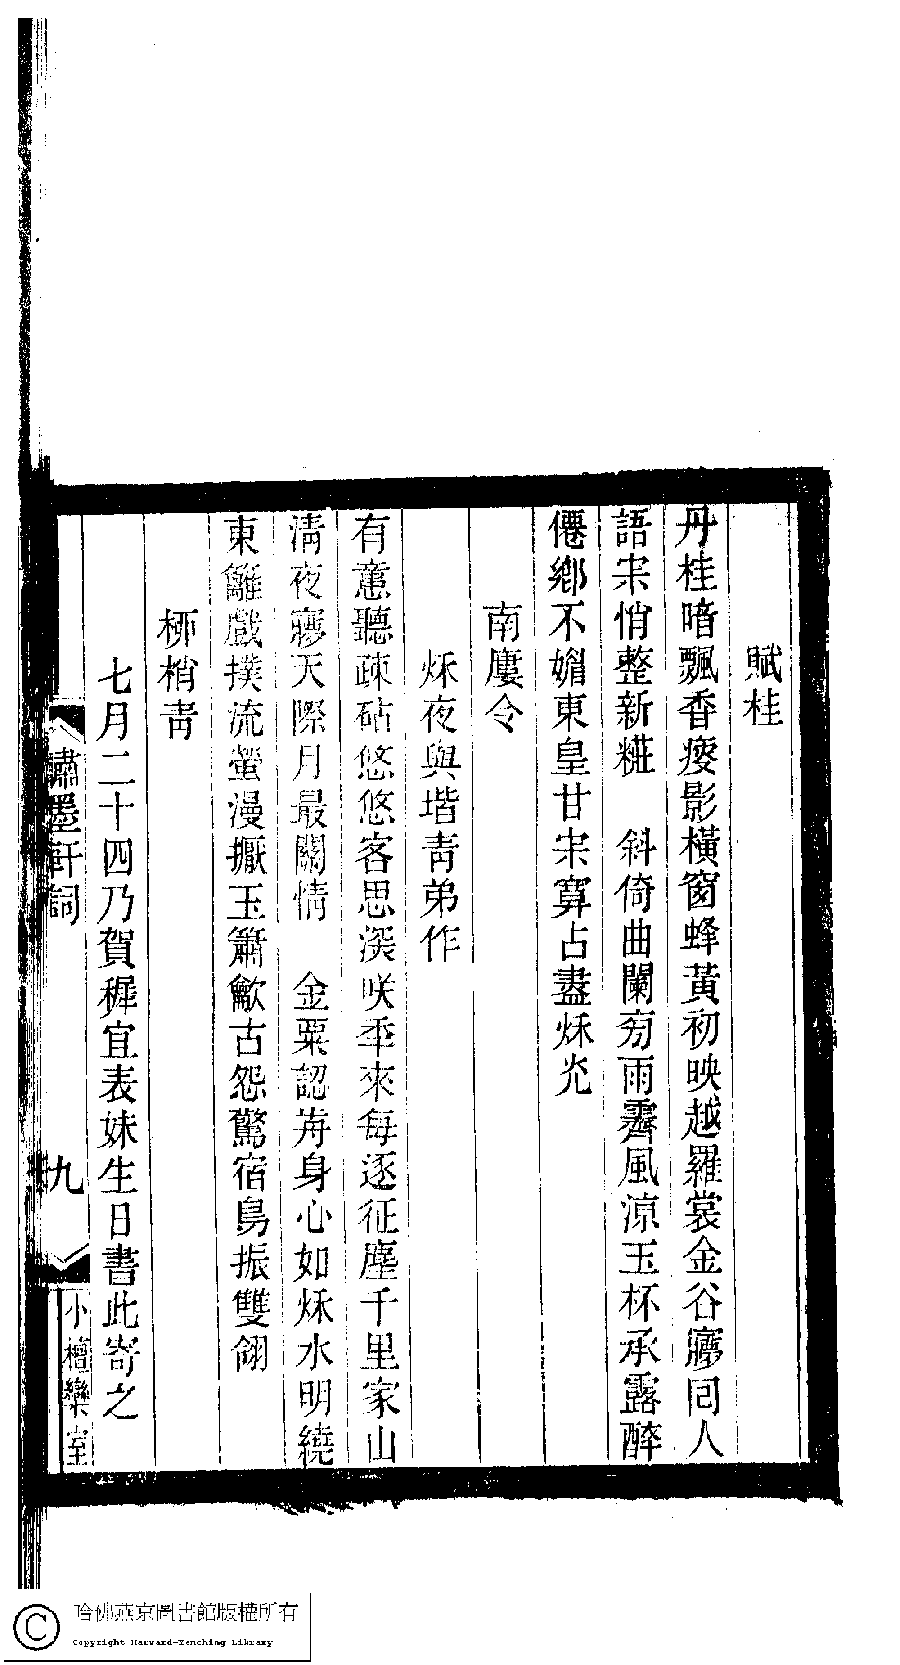 賦桂
丹桂暗飄香瘦影橫窗蜂黃初映越羅裳金谷夢囘人
語宋悄整新糚　斜倚曲闌㫄雨霽風涼玉杯承露醉
僊鄉不媚東皇甘宋寞占盡秌光
南廔令
秌夜與堦靑弟作
有意聽疎砧悠悠客思深咲秊來每逐征塵千里家山
淸夜夢天際月最關情　金粟認歬身心如秌水明繞
東籬戲撲流螢漫擫玉簫龡古怨驚宿鳥振雙翎
桺梢靑
七月二十四乃賀穉宜表妹生日書此寄之
讀墨軒詞
九
小檀欒室
哈佛燕京圖書館版權所有
Copyright Harvard-Yenching Library